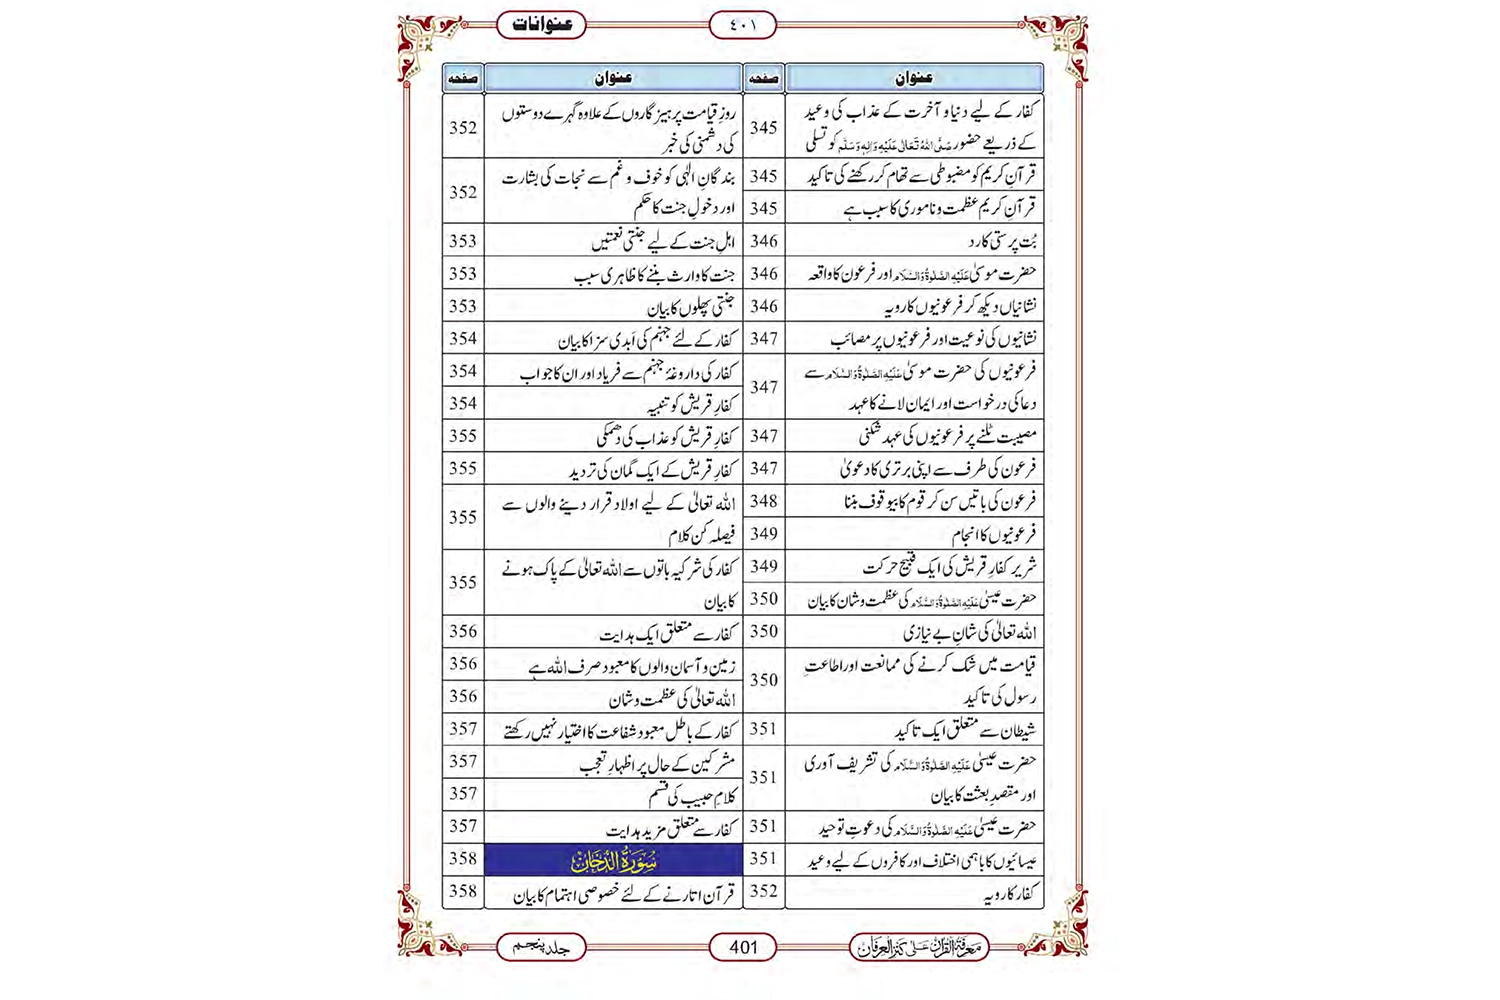 عنوانات
٤٠١
عنوان صفحه
کفار کے لیے دنیا و آخرت کے عذاب کی وعید
کے ذریعے حضور صَلَّی اللہُ تَعَالٰی عَلَیْہِ وَاٰلِہٖ وَسَلَّم کو تسلی 345
قرآنِ کریم کو مضبوطی سے تھام کر رکھنے کی تاکید 345
قرآنِ کریم عظمت و ناموری کا سبب ہے 345
بُت پرستی کا رد 346
حضرت موسیٰ عَلَیْہِ الصَّلٰوۃُ وَالسَّلَام اور فرعون کا واقعہ 346
نشانیاں دیکھ کر فرعونیوں کا رویہ 346
نشانیوں کی نوعیت اور فرعونیوں پر مصائب 347
فرعونیوں کی حضرت موسیٰ عَلَیْہِ الصَّلٰوۃُ وَالسَّلَام سے
دعا کی درخواست اور ایمان لانے کا عہد 347
مصیبت ٹلنے پر فرعونیوں کی عہد شکنی 347
فرعون کی طرف سے اپنی برتری کا دعویٰ 347
فرعون کی باتیں سن کر قوم کا بیوقوف بننا 348
فرعونیوں کا انجام 349
شریر کفارِ قریش کی ایک قبیح حرکت 349
حضرت عیسیٰ عَلَیْہِ الصَّلٰوۃُ وَالسَّلَام کی عظمت و شان کا بیان 350
اللہ تعالیٰ کی شانِ بے نیازی 350
قیامت میں شک کرنے کی ممانعت اور اطاعتِ
رسول کی تاکید 350
شیطان سے متعلق ایک تاکید 351
حضرت عیسیٰ عَلَیْہِ الصَّلٰوۃُ وَالسَّلَام کی تشریف آوری
اور مقصدِ بعثت کا بیان 351
حضرت عیسیٰ عَلَیْہِ الصَّلٰوۃُ وَالسَّلَام کی دعوتِ توحید 351
عیسائیوں کا باہمی اختلاف اور کافروں کے لیے وعید 351
کفار کا رویہ 352
عنوان صفحه
روزِ قیامت پرہیزگاروں کے علاوہ گہرے دوستوں
کی دشمنی کی خبر 352
بندگانِ الٰہی کو خوف و غم سے نجات کی بشارت
اور دخولِ جنت کا حکم 352
اہلِ جنت کے لیے جنتی نعمتیں 353
جنت کا وارث بننے کا ظاہری سبب 353
جنتی پھلوں کا بیان 353
کفار کے لئے جہنم کی اَبدی سزا کا بیان 354
کفار کی داروغۂ جہنم سے فریاد اور ان کا جواب 354
کفارِ قریش کو تنبیہ 354
کفارِ قریش کو عذاب کی دھمکی 355
کفارِ قریش کے ایک گمان کی تردید 355
اللہ تعالیٰ کے لیے اولاد قرار دینے والوں سے
فیصلہ کن کلام 355
کفار کی شرکیہ باتوں سے اللہ تعالیٰ کے پاک ہونے
کا بیان 355
کفار سے متعلق ایک ہدایت 356
زمین و آسمان والوں کا معبود صرف اللہ ہے 356
اللہ تعالیٰ کی عظمت و شان 356
کفار کے باطل معبود شفاعت کا اختیار نہیں رکھتے 357
مشرکین کے حال پر اظہارِ تعجب 357
کلامِ حبیب کی قسم 357
کفار سے متعلق مزید ہدایت 357
سُوْرَۃُ الدُّخَان 358
قرآن اتارنے کے لئے خصوصی اہتمام کا بیان 358
معرفۃ القرآن علی کنز العرفان
401
جلد پنجم